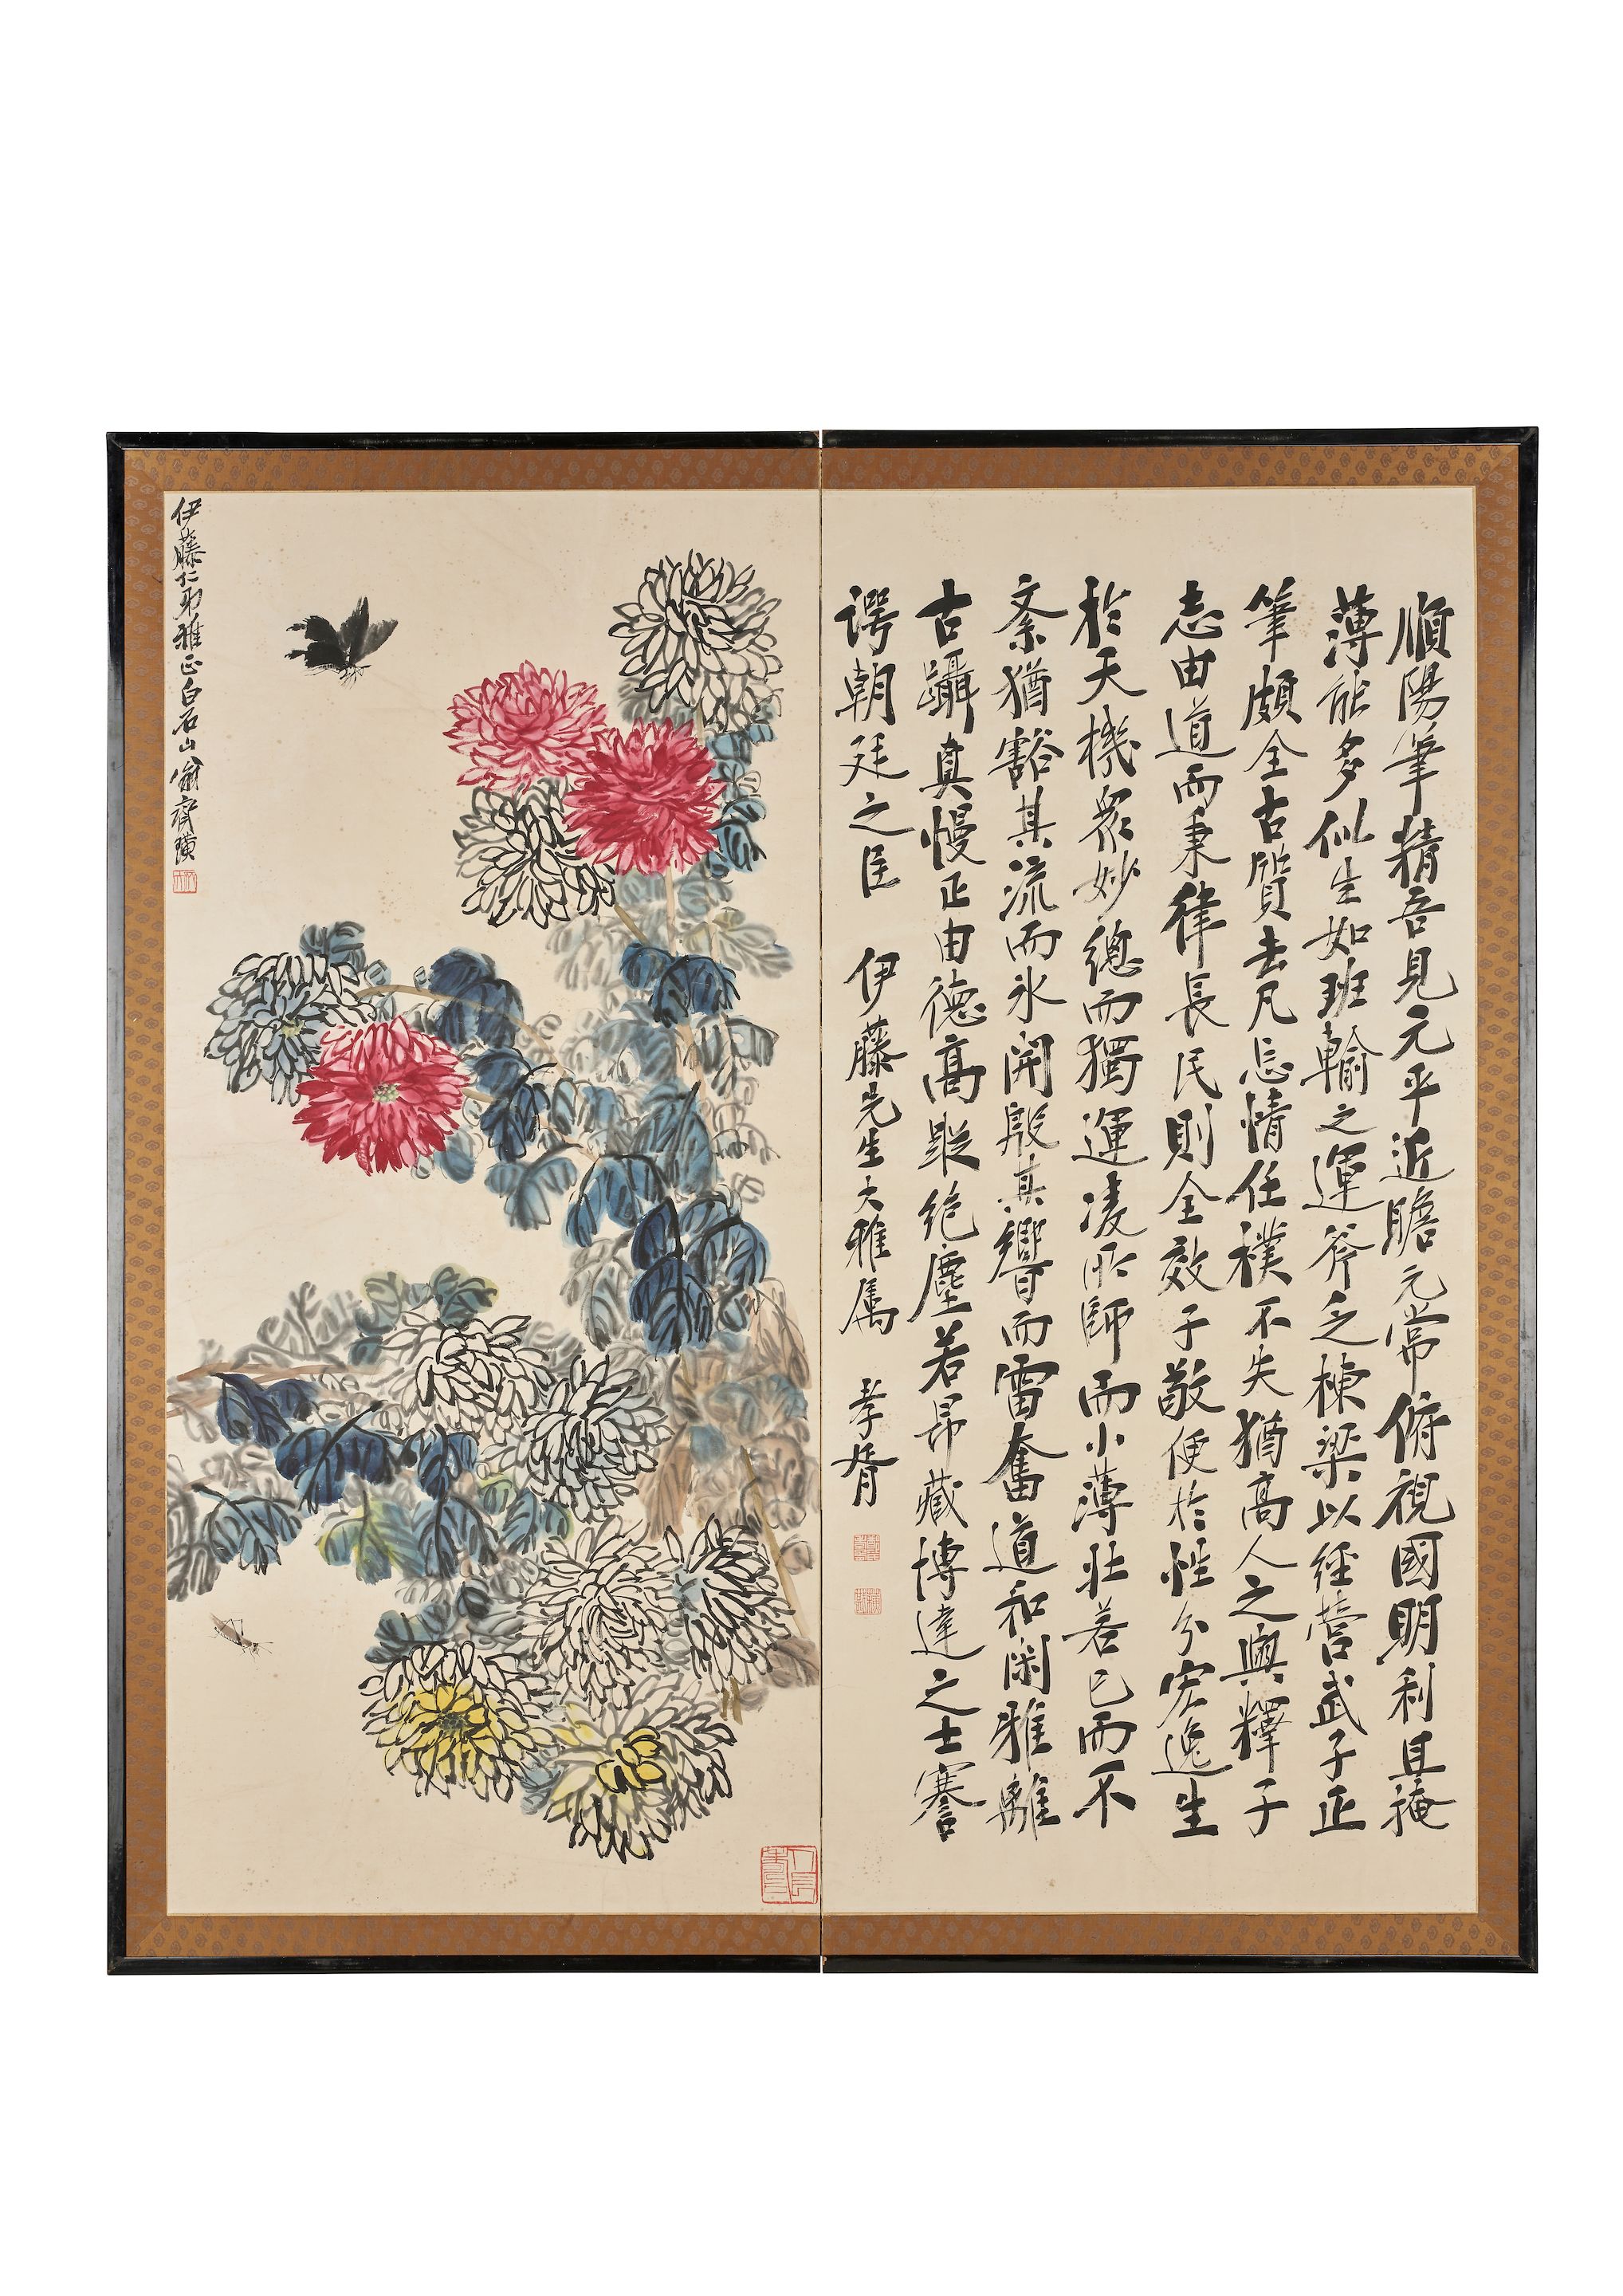 順陽筆精吾見元平近瞻元常俯視國明利且掩
薄能多似生如班輸之運斧乏棟梁以經營武子正
筆頗全古質去凡忘情任樸不失猶高人之與釋子
志由道而秉律長民則全效子敬便於性分宏逸生
於天機眾妙總而獨運淩所師而小薄壯若已而不
紊猶豁其流而冰開殷其響而雷奮道和閑雅離
古躡真慢正由德高蹤絕塵若昂藏博達之士謇
諤朝廷之臣 伊藤先生大雅属 孝胥
伊藤仁弟雅正白石山翁齊璜
人長壽